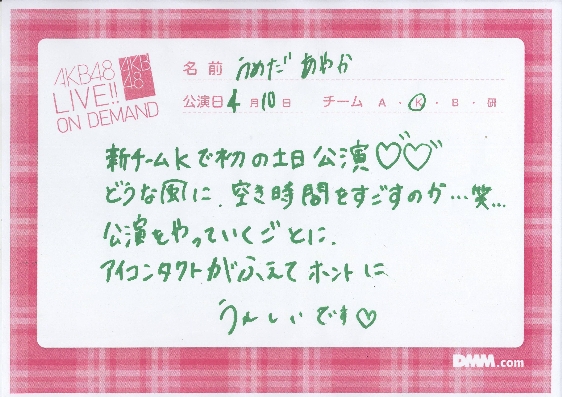 AKB48
LIVE!!
ON DEMAND
AKB
48
名前 うめだ あやか
公演日 4月10日 チーム A・K・B・研
新チームKで初の土日公演♡♡
どうな風に、空き時間をすごすのか…笑…
公演をやっていくごとに、
アイコンタクトがふえてホントに
うれしいです♡
DMM.com